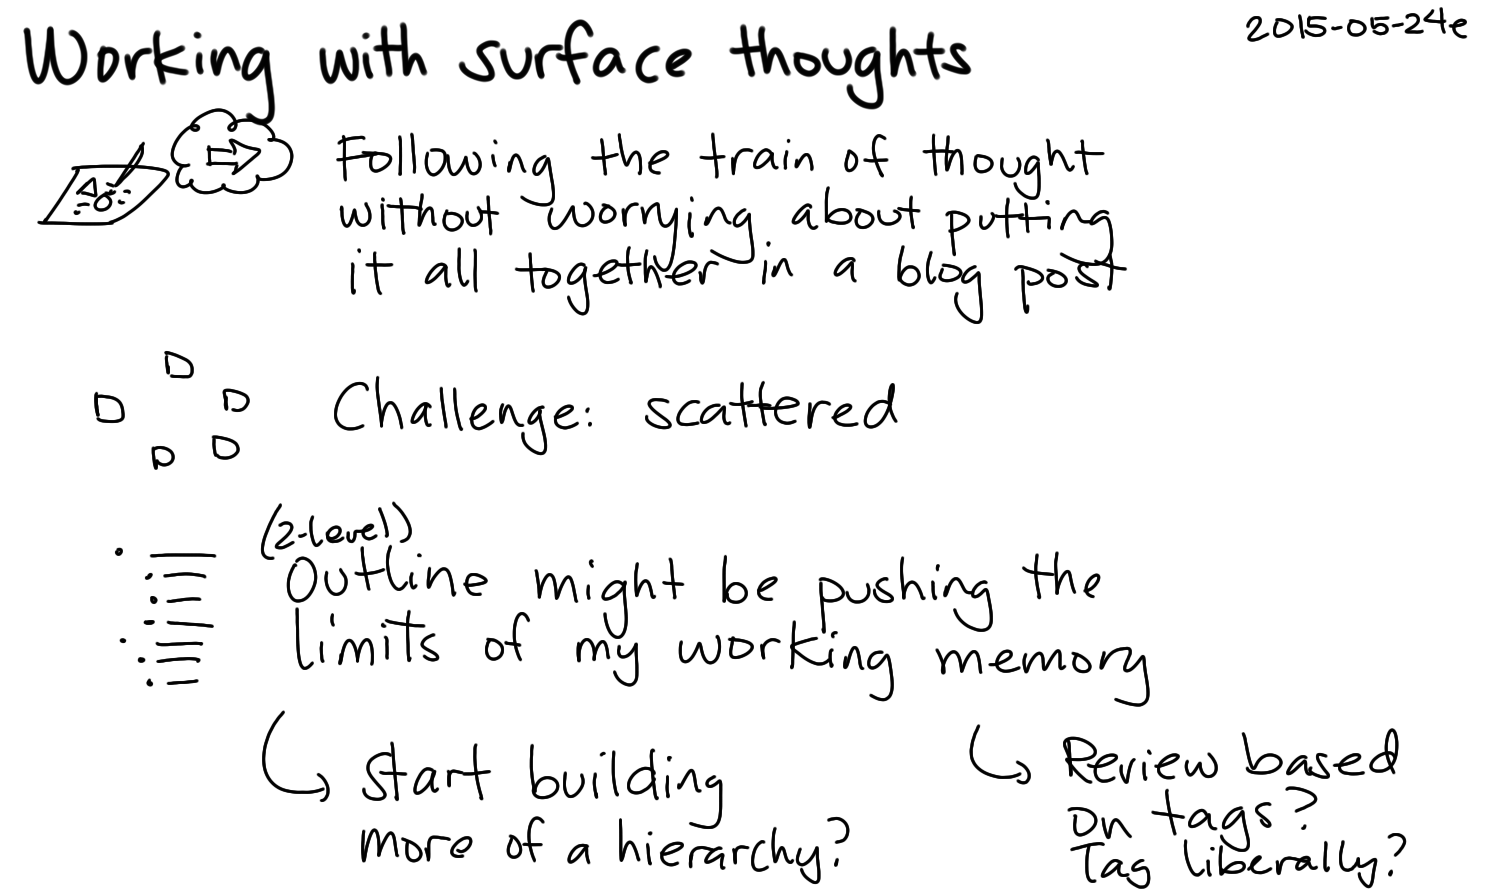 Working with surface thoughts
2015-05-24e
Following the train of thought
without worrying about putting
it all together in a blog post
Challenge: scattered
(2-level)
Outline might be pushing the
limits of my working memory
Start building
more of a hierarchy?
Review based
on tags?
Tag liberally?